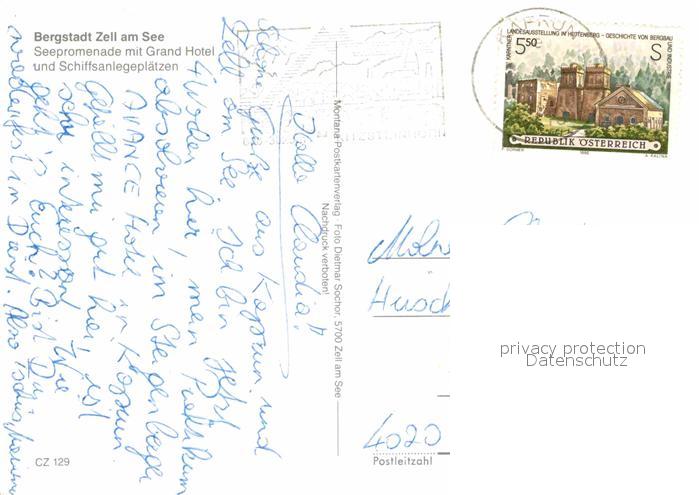 Bergstadt Zell am See
Seepromenade mit Grand Hotel
und Schiffsanlegeplätzen
Hallo Claudia!!
Schöne Grüße aus Kaprun und
Zell am See. Ich bin jetzt
4 Wochen hier, mein Praktikum
absolvieren, im Steigenberger
AVANCE Hotel in Kaprun
Gefällt mir gut hier, ist
sehr interessant. Wie
geht's Euch? Bist Du
in Also
CZ 129
Montana-Postkartenverlag · Foto Dietmar Sochor, 5700 Zell am See
Nachdruck verboten!
KAPRUN
III. KÄRNTNER LANDESAUSSTELLUNG IN HÜTTENBERG - GESCHICHTE VON BERGBAU UND INDUSTRIE
5.50 S
REPUBLIK ÖSTERREICH
1995
4020
Postleitzahl
privacy protection
Datenschutz